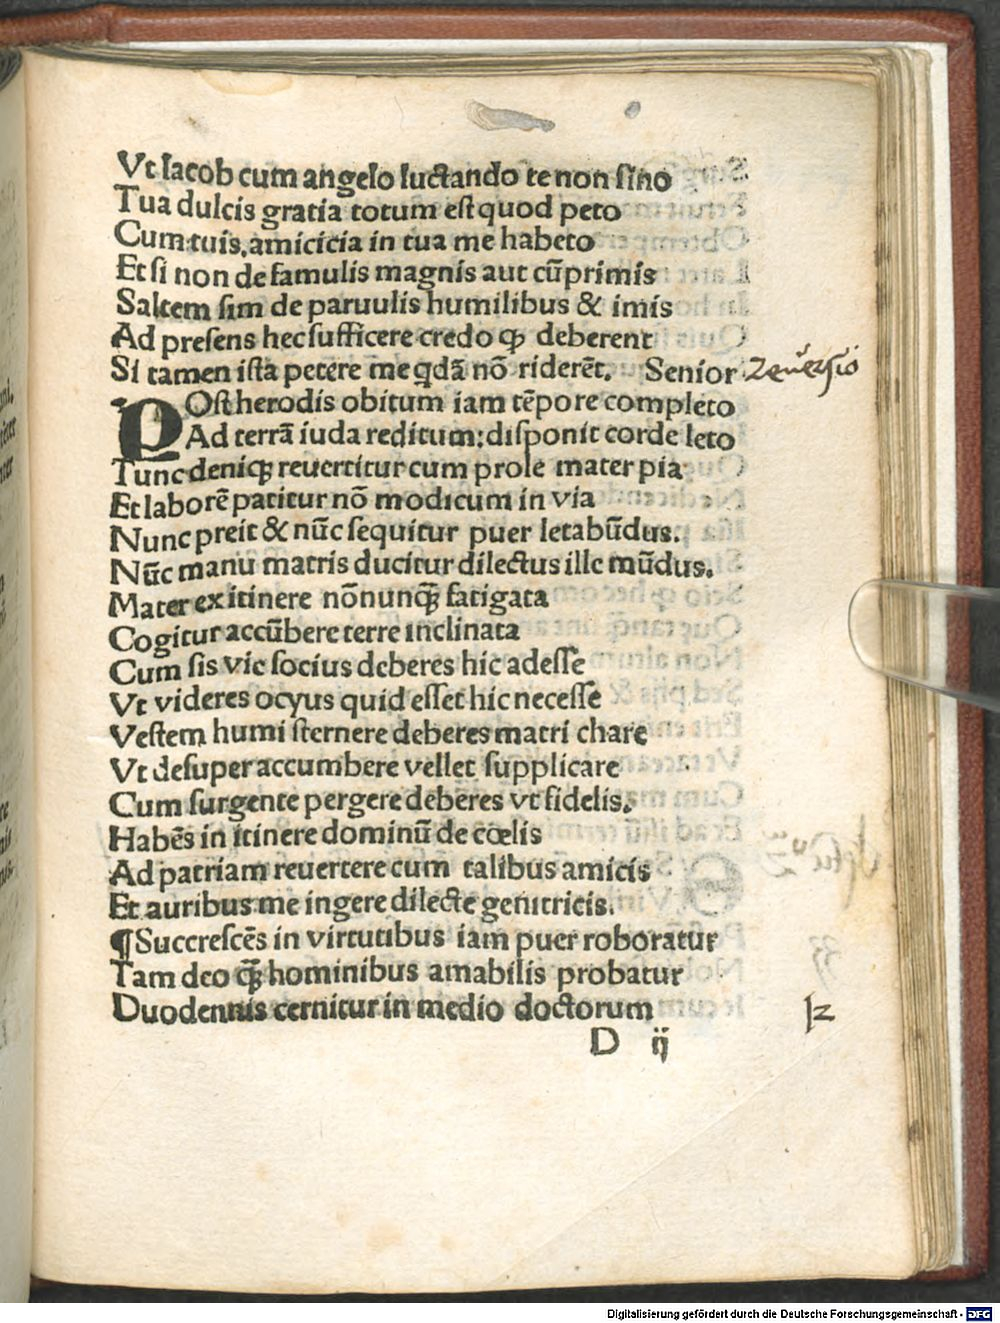 Vt Iacob cum angelo luctando te non sino
Tua dulcis gratia totum est quod peto
Cum tuis, amicicia in tua me habeto
Et si non de famulis magnis aut cū primis
Saltem sim de paruulis humilibus & imis
Ad presens hec sufficere credo ꝙ deberent
Si tamen ista petere me qdā nō riderēt. Senior
POst herodis obitum iam tēpore completo
Ad terrā iuda reditum: disponit corde leto
Tunc deniqꝫ reuertitur cum prole mater pia
Et laborē patitur nō modicum in via
Nunc preit & nūc sequitur puer letabūdus.
Nūc manu matris ducitur dilectus ille mūdus.
Mater ex itinere nōnunqꝫ fatigata
Cogitur accūbere terre inclinata
Cum sis vie socius deberes hic adesse
Vt videres ocyus quid esset hic necesse
Vestem humi sternere deberes matri chare
Vt desuper accumbere vellet supplicare
Cum surgente pergere deberes vt fidelis.
Habēs in itinere dominū de cœlis
Ad patriam reuertere cum talibus amicis
Et auribus me ingere dilecte genitricis.
¶Succrescēs in virtutibus iam puer roboratur
Tam deo qꝫ hominibus amabilis probatur
Duodennis cernitur in medio doctorum
12
D ij
Digitalisierung gefördert durch die Deutsche Forschungsgemeinschaft - DFG